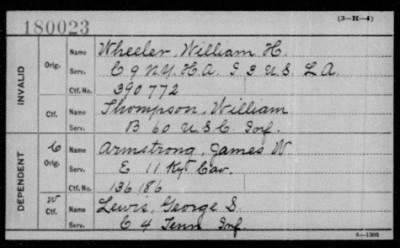 180023
(3—H—4)
INVALID
Orig. Name Wheeler, William H.
Serv. C 9 N.Y. H.A. I 3 U.S. L A.
Ctf. No. 390772
Ctf. Name Thompson, William
Serv. B 60 U S C Inf.
DEPENDENT
C Orig. Name Armstrong, James W
Serv. E 11 Ky Cav.
Ctf. No. 136186
W Ctf. Name Lewis, George S.
Serv. C 4 Tenn Inf.